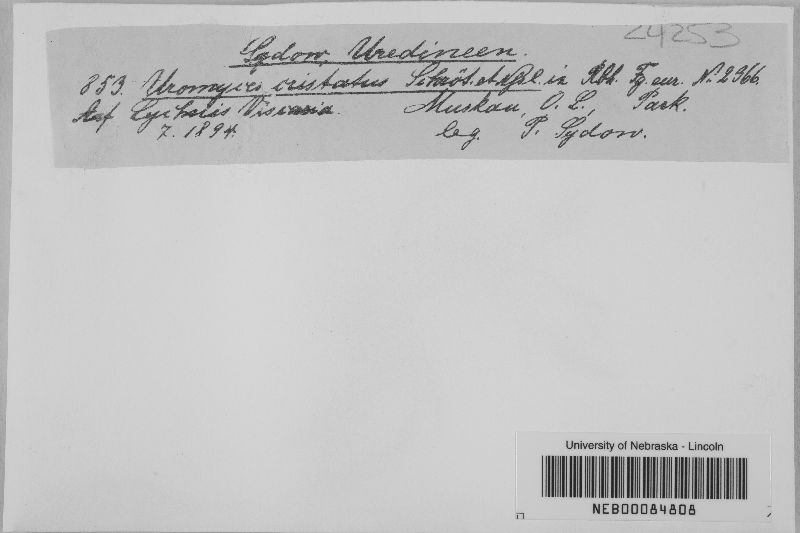 24253
Sydow, Uredineen.
853. Uromyces cristatus Schröt. et Nssl. in Rbh. Fg. eur. N. 2966.
Auf Lychnis Viscaria. Muskau, O. L., Park.
7. 1894. leg. P. Sydow.
University of Nebraska - Lincoln
NEB00084808